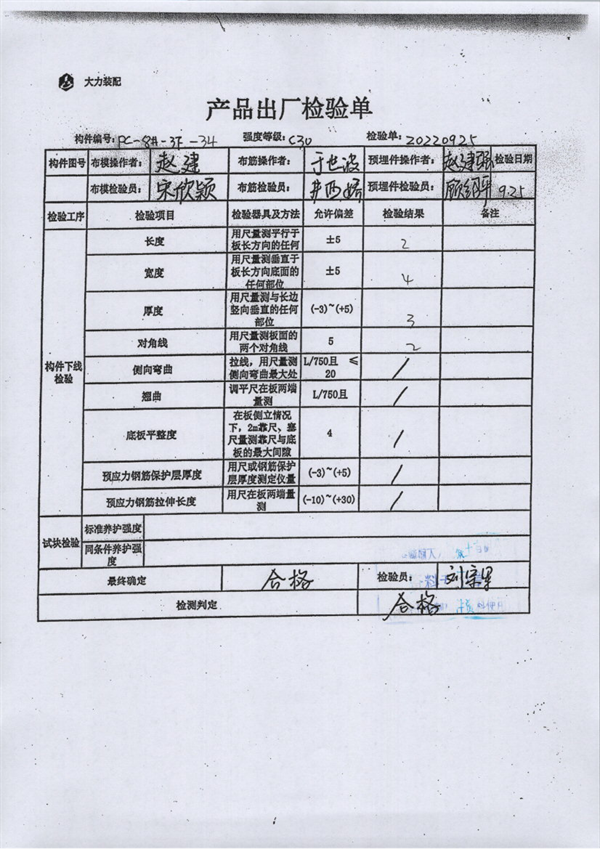 大力装配
产品出厂检验单
构件编号: PC-8#-3F-34 强度等级: C30 检验单: 20220925
构件图号 布模操作者: 赵建 布筋操作者: 于世波 预埋件操作者: 赵建强 检验日期
布模检验员: 宋欣颖 布筋检验员: 预埋件检验员: 9.25
检验工序 检验项目 检验器具及方法 允许偏差 检验结果 备注
构件下线检验
长度 用尺量测平行于板长方向的任何 ±5 2
宽度 用尺量测垂直于板长方向底面的任何部位 ±5 4
厚度 用尺量测与长边竖向垂直的任何部位 (-3)~(+5) 3
对角线 用尺量测板面的两个对角线 5 2
侧向弯曲 拉线，用尺量测侧向弯曲最大处 L/750且 ≤20 /
翘曲 调平尺在板两端量测 L/750且 /
底板平整度 在板侧立情况下，2m靠尺、塞尺量测靠尺与底板的最大间隙 4 /
预应力钢筋保护层厚度 用尺或钢筋保护层厚度测定仪量 (-3)~(+5) /
预应力钢筋拉伸长度 用尺在板两端量测 (-10)~(+30) /
试块检验 标准养护强度
同条件养护强度
最终确定 合格 检验员:
检测判定 合格